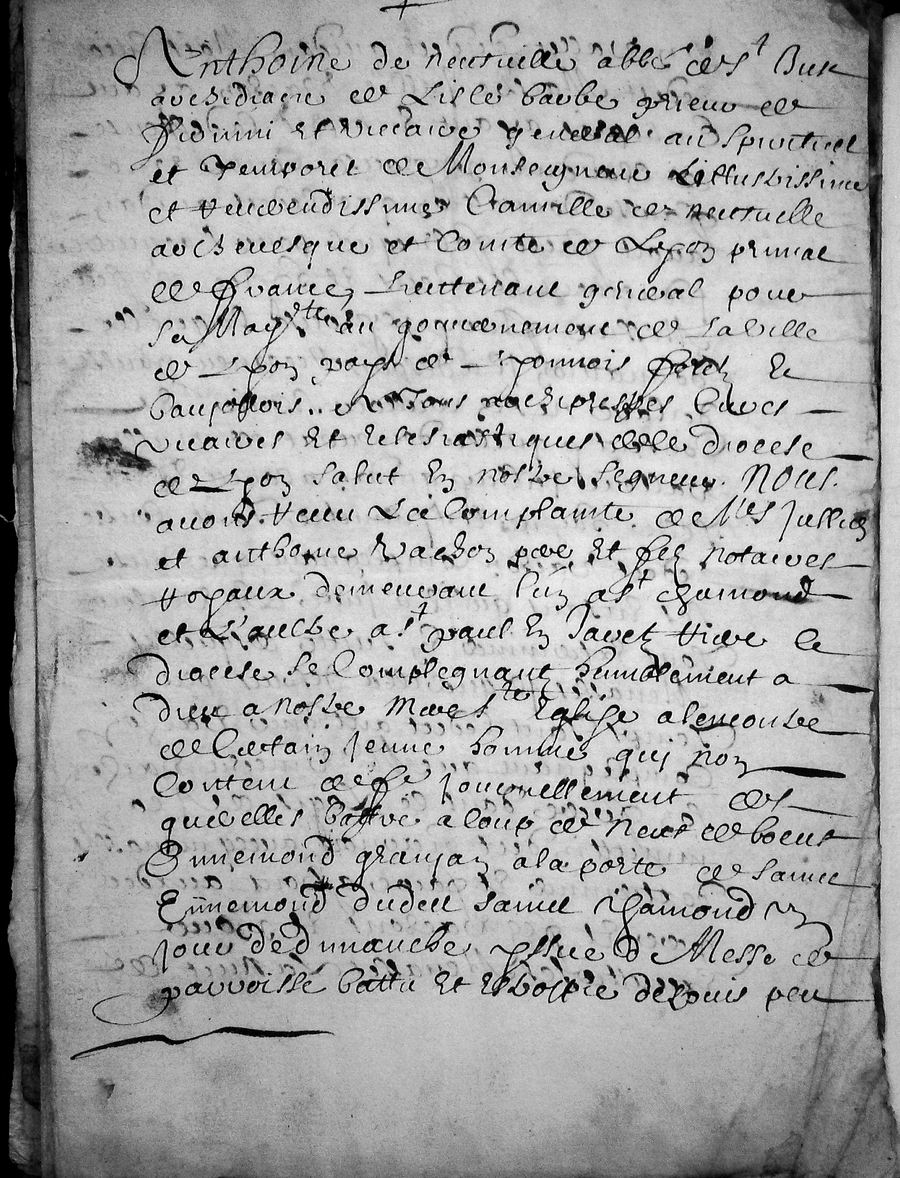 Anthoine de neufuille abbé de st Just
archidiacre de Lisle barbe prieur de
firmini et viccaire general au Spirituel
et Temporel de Monseigneur Lillustrissime
et Reverendissime Camille de neufuille
archeuesque et Comte de Lyon primat
de france Lieutenant general pour
sa Mayte au gouuernement de la ville
de Lyon pays de Lyonnois forez et
baujollois .. a Tous archiprestres Cures
vicaires Et Eclesiastiques de le diocese
de Lyon salut En nostre Segneur. Nous
auons Receu La Complainte de Mes Jullien
et anthoine Vachon pere Et filz notaires
Royaux demeurant l'un a st chamond
et L'aultre a st paul En Jarez Hire le
diocese se Complegnantz humblement a
dieu a nostre mere ste Eglise alencontre
de Certain Jeune homme quy non
Content de fe Journellement des
querelles battre a coup de nerf de boeuf
Ennemond granjan a la porte de sainct
Ennemond dudict sainct chamond un
Jour de dimanche yssue de Messe de
parroisse battu Et Estropié depuis peu